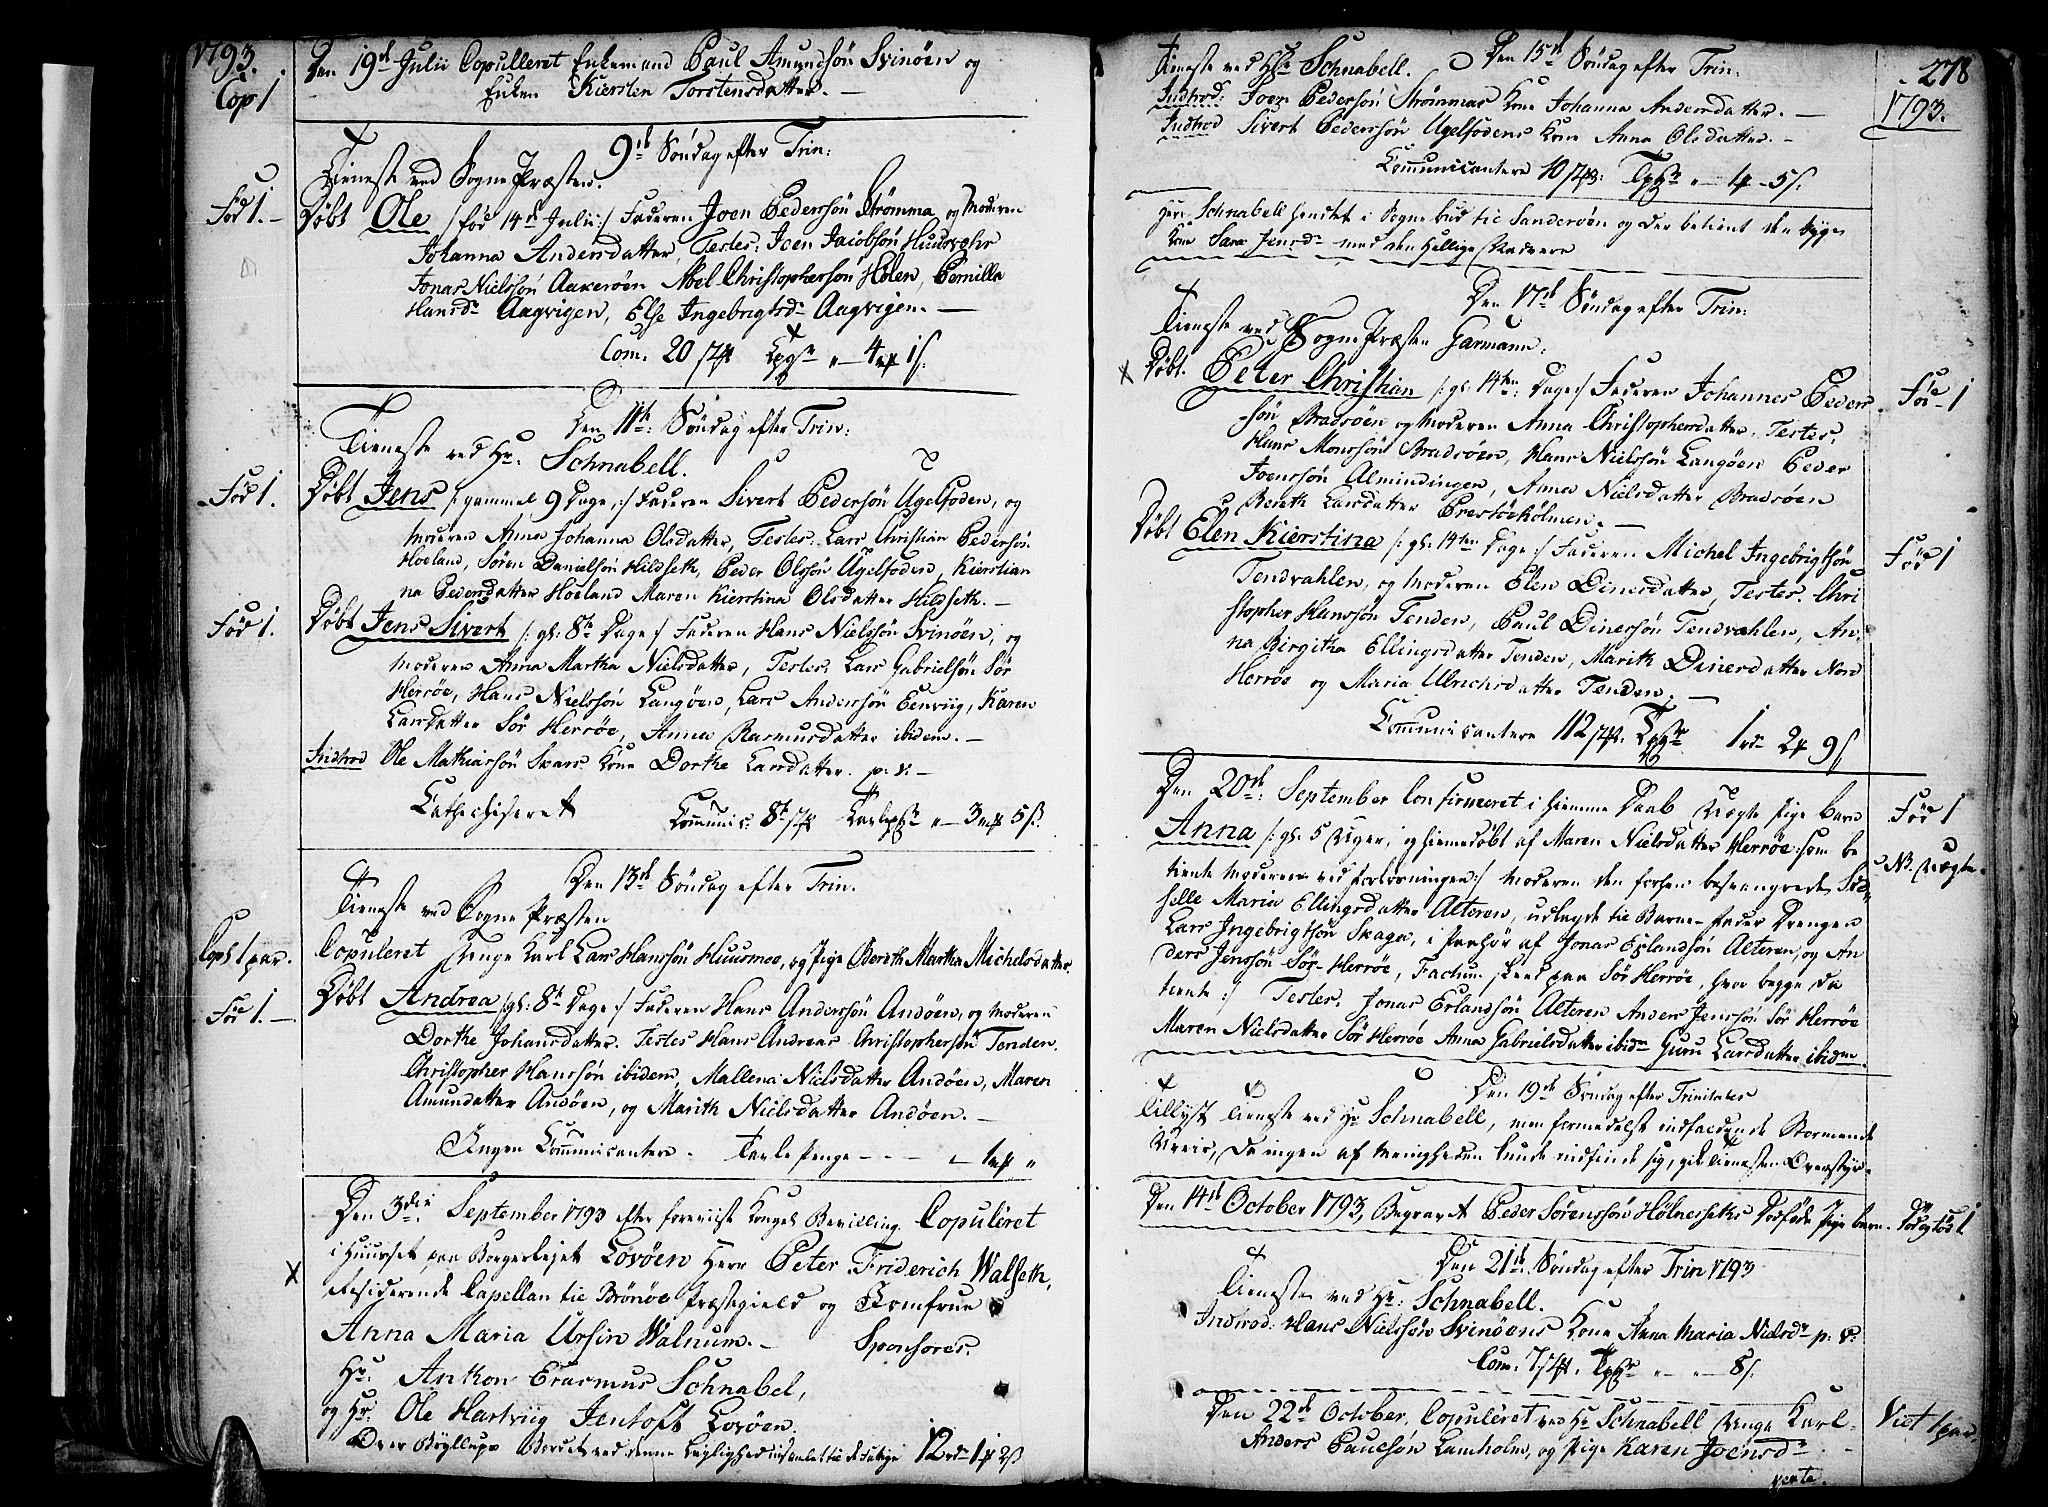 1793.
Cop 1
Den 19de Julii Copulleret Enkemand Paul Amundsøn Svinøen og
Enken Kiersten Torstensdatter. —
9de Søndag efter Trin:
Tieneste ved Sogne Præsten.
Fød 1. —
Døbt Ole /: fød 14de Julii :/ Faderen Joen Pedersøn Strømma og Moderen
Johanna Andersdatter, Testes: Joen Jacobsøn Huusvær
Jonas Nielssøn Aakerøen Abel Christophersøn Holen, Pernilla
Hansdr Aagvigen, Else Ingebrigtsdr Aagvigen. —
Com: 20 Stk 4 1 s:
Den 11te: Søndag efter Trin:
Tieneste ved Hr: Schnabell.
Fød 1.
Døbt Jens /: gammel 9 Dage, :/ Faderen Sivert Pedersøn Ugelfoden, og
Moderen Anna Johanna Olsdatter, Testes: Lars Christian Pedersøn
Hoeland, Søren Danielsøn Hildseth, Peder Olssøn Ugelfoden, Kierstian
na Pedersdatter Hoeland Maren Kierstina Olsdatter Hildseth. —
Fød 1.
Døbt Jens Sivert /: gl: 8te Dage :/ Faderen Hans Nielssøn Svinøen, og
Moderen Anna Martha Nielsdatter, Testes. Lars Gabrielsøn Sør
Herrøe, Hans Nielssøn Langøen, Lars Anderssøn Eenviig, Karen
Larsdatter Sør Herrøe, Anna Rasmusdatter ibidem. —
Indtrod Ole Mathiassøn Skars Kone Dorthe Larsdatter. p. v. —
Cathechiseret Communic: 8te Stk 3 5 s.
Den 13de Søndag efter Trin.
Tieneste ved Sogne Præsten
Cop: 1 par.
Copuleret Unge Karl Lars Hanssøn Huusmoe, og Pige Bereth Martha Michelsdatter
Fød 1. —
Døbt Andrea /: gl: 8te Dage :/ Faderen Hans Anderssøn Andøen, og Moderen
Dorthe Johansdatter. Testes Hans Andreas Christophersøn Tenden
Christopher Hanssøn ibidem, Mallena Nielsdatter Andøen, Maren
Amundatter Andøen, og Marith Nielsdatter Andøen. —
Ingen Communicantere. Tavle Penge - - - - 1
Den 3die September 1793 efter foreviist Kongel: Bevilling Copuleret
i Huuset paa Borgerlejet Lovøen Herr Peter Friderich Walseth,
Residerende Capellan til Brønøe Præstegield og Jomfrue
Anna Maria Ursin Walnum. — Sponsores.
Hr: Anton Erasmus Schnabel,
og Hr: Ole Hartviig Jentoft Lovøen.
Over Brøllups Bordet ved denne Leylighed indsamlet til de Fattige 12 rd 1 2 s
278
1793.
Tieneste ved Hr Schnabell. Den 15de Søndag efter Trin:
Indtrod: Joen Pedersøn Strømmas Kone Johanna Andersdatter. —
Indtrod Sivert Pedersøn Ugelfodens Kone Anna Olsdatter. —
Communicantere 10 Stk: 4 - 5 s.
Herr Schnabell hendtet i Sognebud til Sanderøen og der betient den syge
Kone Sara Jensdr med den Hellige Nadvere
Den 17de Søndag efter Trin:
Tieneste ved Sogne Præsten Garmann.
Fød 1
Døbt. Peter Christian /: gl: 14ten Dage :/ Faderen Johannes Peder-
søn Bradsøen og Moderen Anna Christophersdatter, Testes.
Hans Monssøn Bradsøen, Hans Nielssøn Langøen Peder
Joenssøn Almindingen, Anna Nielsdatter Bradsøen
Bereth Larsdatter Prestøeholmen. —
Fød 1
Døbt Elen Kierstina /: gl: 14ten Dage :/ Faderen Michel Ingebrigtsøn
Tendvahlen, og Moderen Elen Dinesdatter, Testes. Chri
stopher Hanssøn Tenden, Paul Dinersøn Tendvahlen, An-
na Birgitha Ellingsdatter Tenden, Marith Dinersdatter Nord
Herrøe og Maria Ulrichsdatter Tenden. —
Communicantere 112 Stk: 1 rd 2 9 s
Fød 1
NB. Uægte.
Den 20de: September Confirmeret i Hiemme Daab Uægte Pige Barn
Anna /: gl: 5 Uger, og hiemedøbt af Maren Nielsdatter Herrøe som be
tiente Moderen ved Forløsningen :/ Moderen den forhen besvangrede Sid-
selle Maria Ellingsdatter Alteren, udlagde til Barne-Fader Drengen
Lars Ingebrigtsøn Skaga, i Paahør af Jonas Erlandsøn Alteren, og An
ders Jenssøn Sør-Herrøe, Factum skeed paa Sør Herrøe, hvor begge da
tiente :/ Testes. Jonas Erlandsøn Alteren Anders Jenssøn Sør Herrøe
Maren Nielsdatter Sør Herrøe Anna Gabrielsdatter ibidm Guru Larsdatter ibidm.
Den 19de Søndag efter Trinitates
Tillyst Tieneste ved Hr Schnabell, men formedelst indfaldende Stormende
Veir, da ingen af Menigheden kunde indfinde sig, gik Tienesten Overstyr.
Den 14de October 1793, Begravet Peder Sørenssøn Holmesseths Dødfødde Pige barn.
Dødfød 1
Den 21de: Søndag efter Trin 1793
Tieneste ved Hr: Schnabell.
Indtrod: Hans Nielssøn Svinøens Kone Anna Maria Nielsdr p: v:
Com: 7 Stk. 8 s.
Den 22de October, Copuleret ved Hr Schnabell Unge Karl
Anders Paulsøn Lamholm, og Pige Karen Joensdr
Viet 1 par.
verte.